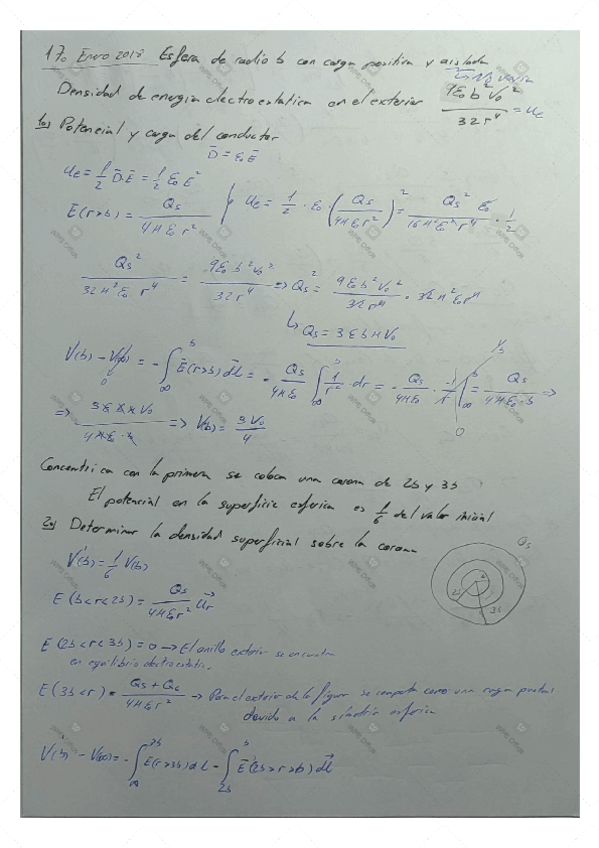 17. Enero 2018 Esfera de radio b con carga positiva y aislada
Densidad de energia electroestatica en el exterior 9ε₀b²V₀² / 32r⁴ = ue
1º) Potencial y carga del conductor
D̄ = ε₀Ē
ue = 1/2 D̄·Ē = 1/2 ε₀E²
E(r>b) = Qs / 4πε₀r² ue = 1/2 · ε₀ (Qs / 4πε₀r²)² = Qs² ε₀ / 16π²ε₀²r⁴ · 1/2
Qs² / 32π²ε₀r⁴ = 9ε₀b²V₀² / 32r⁴ => Qs² = 9ε₀b²V₀² / 32r⁴ · 32π²ε₀r⁴
↳ Qs = 3εbπV₀
V(b) - V(∞) = -∫ Ē(r>b) dl̄ = - Qs / 4πε₀ ∫ 1/r² · dr = - Qs / 4πε₀ · -1/r | = Qs / 4πε₀·b =>
0
=> 3εbπV₀ / 4πε₀·b => V(b) = 3V₀ / 4
Concentrica con la primera se coloca una corona de 2b y 3b
El potencial en la superficie esferica es 1/6 del valor inicial
2º) Determinar la densidad superficial sobre la corona
V'(b) = 1/6 V(b)
E(b<r<2b) = Qs / 4πε₀r² ur
E(2b<r<3b) = 0 → El anillo exterior se encuentra
en equilibrio electroestatic.
E(3b<r) = Qs + Qc / 4πε₀r² → Para el exterior de la figura se comporta como una carga puntual
devido a la simetria esferica
V(b) - V(∞) = -∫ E(r>3b) dl - ∫ Ē(2b>r>b) dl̄